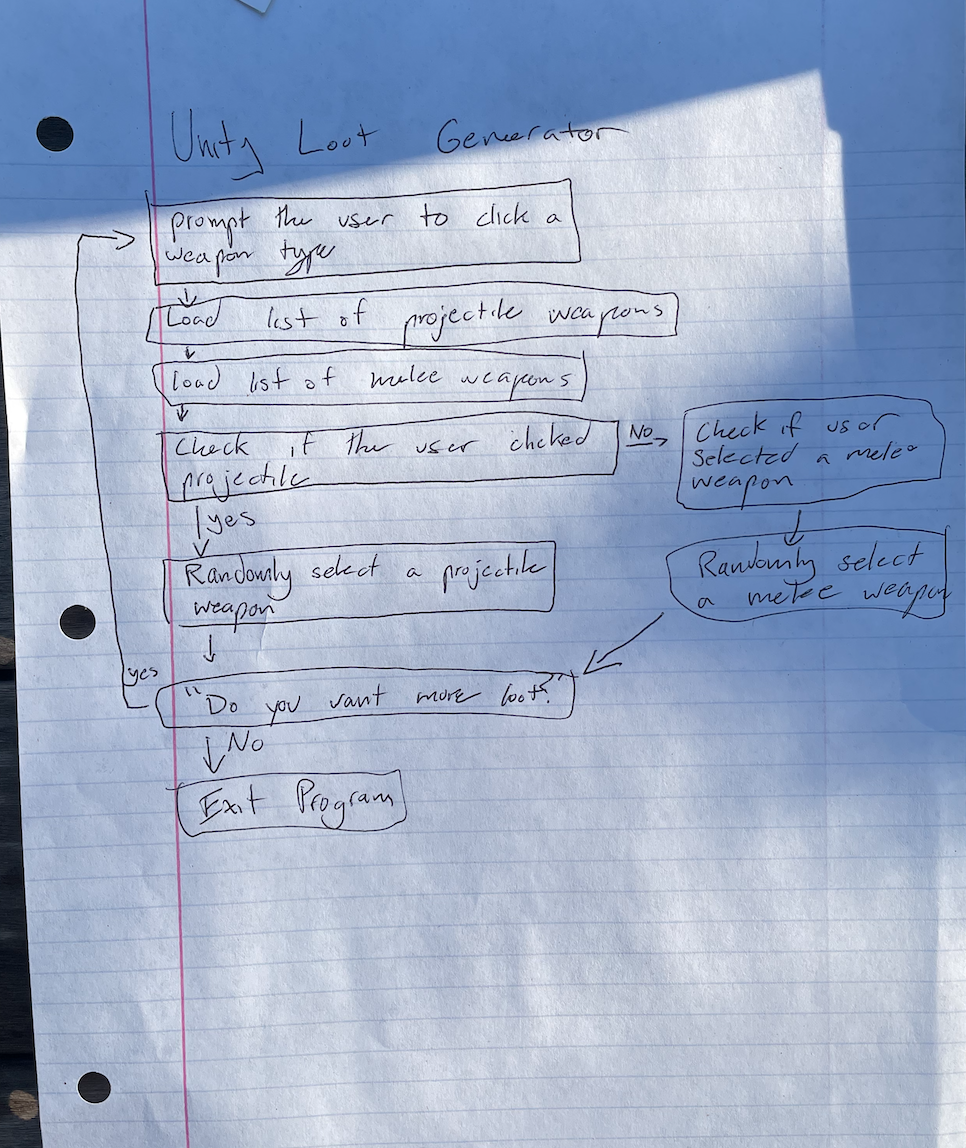 Unity Loot Generator
prompt the user to click a
weapon type
Load list of projectile weapons
load list of melee weapons
Check if the user clicked
projectile
No
Check if user
selected a melee
weapon
yes
Randomly select a projectile
weapon
Randomly select
a melee weapon
yes
"Do you want more loot?"
No
Exit Program